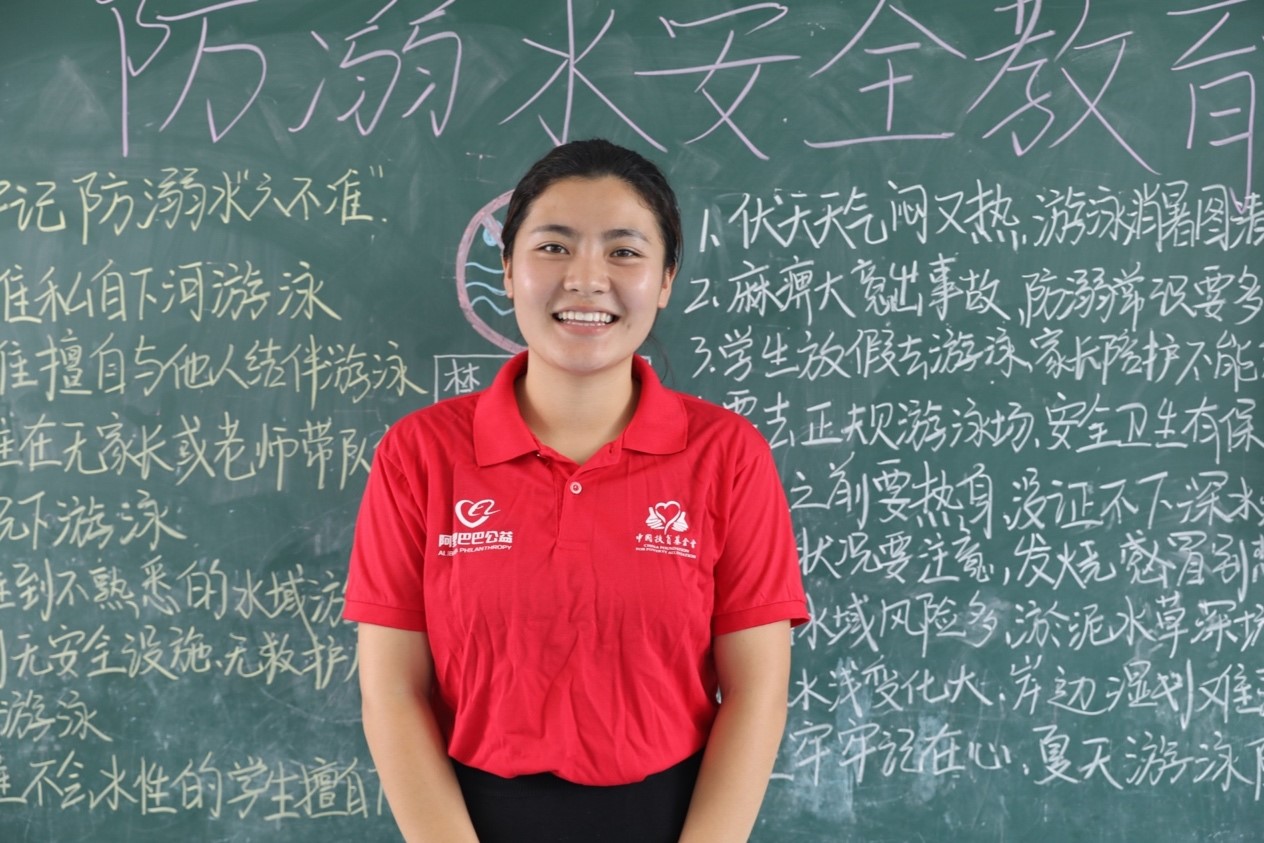 防溺水安全教育
牢记防溺水“六不准”.
准私自下河游泳
准擅自与他人结伴游泳
准在无家长或老师带队
况下游泳
准到不熟悉的水域游
无安全设施、无救护
游泳
准不会水性的学生擅自
禁
1、伏天天气闷又热,游泳消暑图凉
2、麻痹大意出事故,防溺常识要多
3、学生放假去游泳、家长陪护不能
要去正规游泳场、安全卫生有保
之前要热身、没证不下深水
状况要注意,发烧感冒别
水域风险多、淤泥水草深坑
水浅变化大、岸边湿划难
牢牢记在心、夏天游泳防
阿里巴巴公益
ALIBABA PHILANTHROPY
中国扶贫基金会